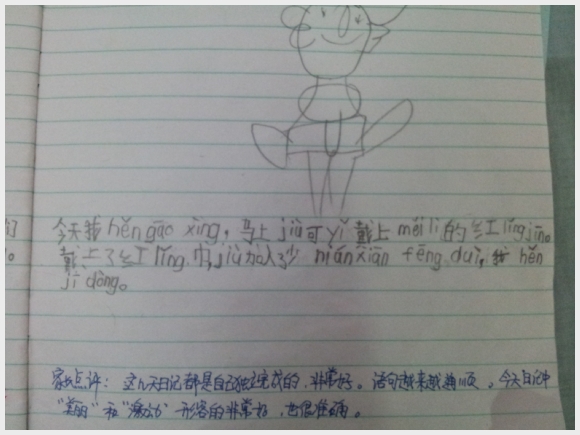 今天我hěn gāo xìng，马上jiù可yǐ戴上měi lì的红lǐng jīn。
戴上了红lǐng巾，jiù加入少nián xiān fēng duì，我hěn
jī dòng。
家长点评：这几天日记都是自己独立完成的，非常好。语句越来越通顺。今天日记中
"美丽"和"激动"形容的非常好，也很准确。